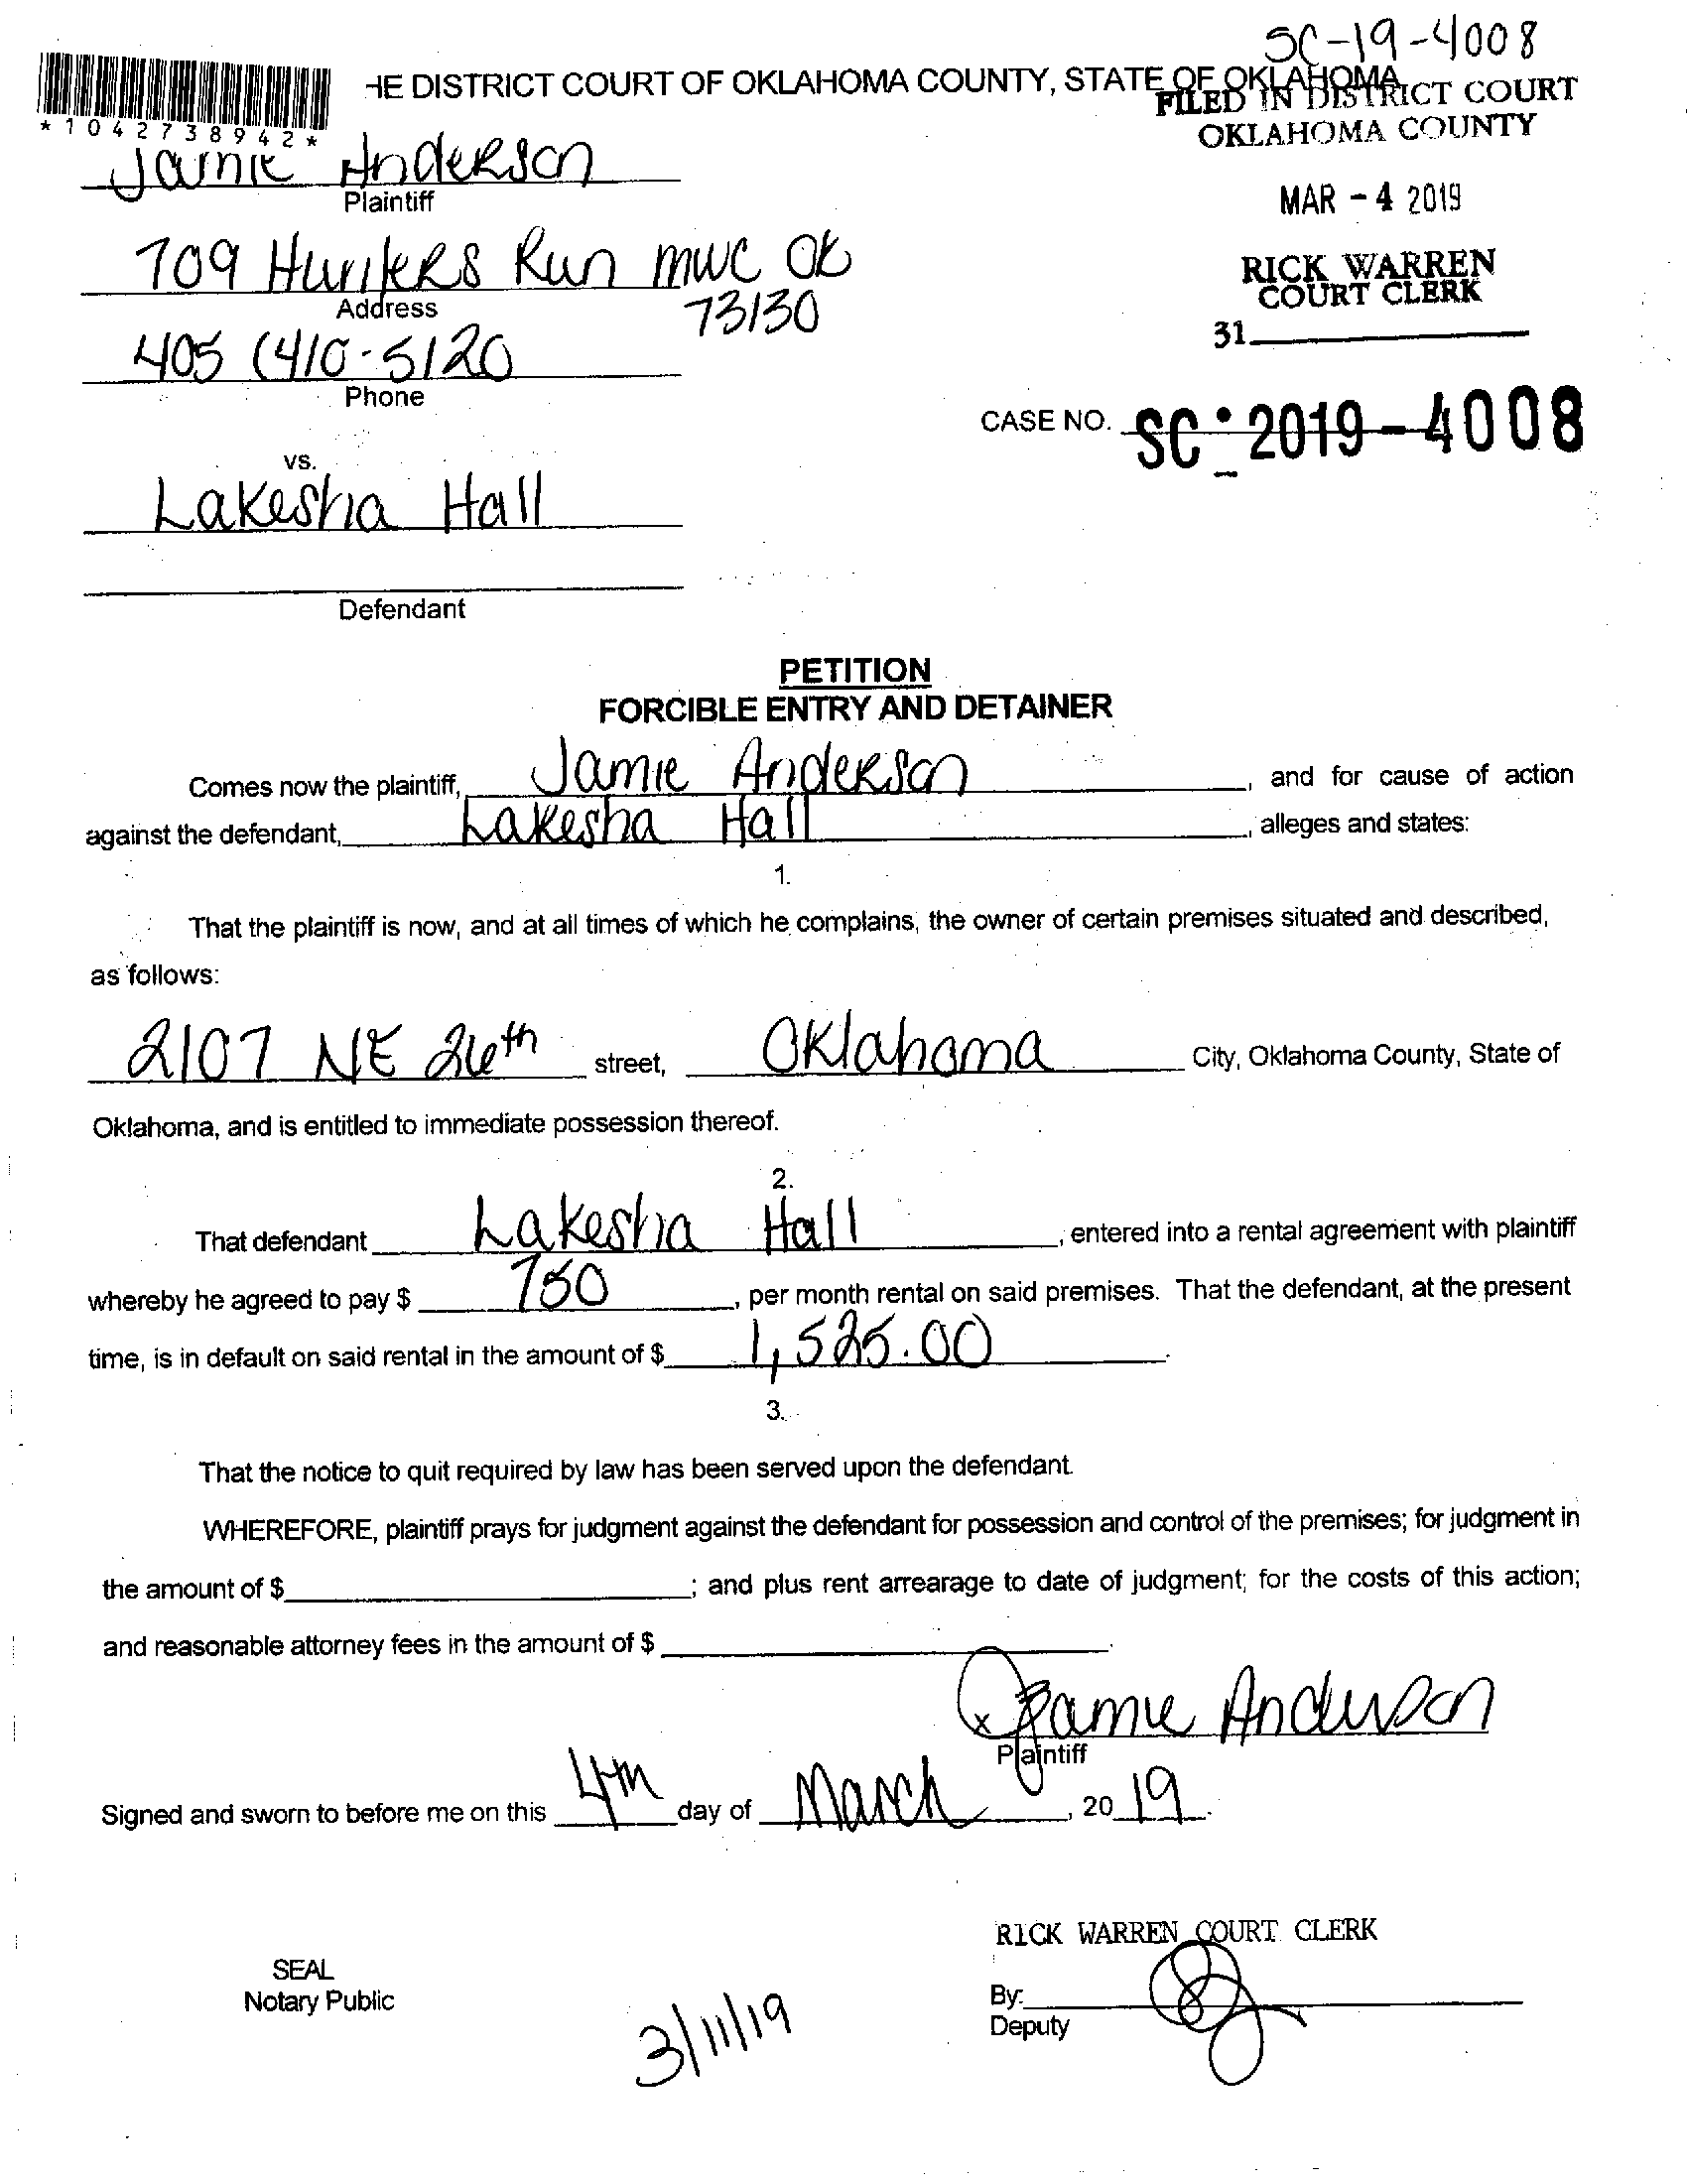 SC-19-4008
HE DISTRICT COURT OF OKLAHOMA COUNTY, STATE OF OKLAHOMA
FILED IN DISTRICT COURT
OKLAHOMA COUNTY
*1042738942*
Jamie Anderson
Plaintiff
MAR - 4 2019
709 Hunters Run MWC OK
Address
73130
RICK WARREN
COURT CLERK
31
405 (410-5120
Phone
CASE NO. SC 2019-4008
vs.
Lakesha Hall
Defendant
PETITION
FORCIBLE ENTRY AND DETAINER
Comes now the plaintiff, Jamie Anderson, and for cause of action
against the defendant, Lakesha Hall, alleges and states:
1.
That the plaintiff is now, and at all times of which he complains, the owner of certain premises situated and described,
as follows:
2107 NE 26th street, Oklahoma City, Oklahoma County, State of
Oklahoma, and is entitled to immediate possession thereof.
2.
That defendant Lakesha Hall, entered into a rental agreement with plaintiff
whereby he agreed to pay $ 750, per month rental on said premises. That the defendant, at the present
time, is in default on said rental in the amount of $ 1,525.00.
3.
That the notice to quit required by law has been served upon the defendant.
WHEREFORE, plaintiff prays for judgment against the defendant for possession and control of the premises; for judgment in
the amount of $; and plus rent arrearage to date of judgment; for the costs of this action;
and reasonable attorney fees in the amount of $.
x Jamie Anderson
Plaintiff
Signed and sworn to before me on this 4th day of March, 2019.
RICK WARREN COURT CLERK
SEAL
Notary Public
By:
Deputy
3/11/19